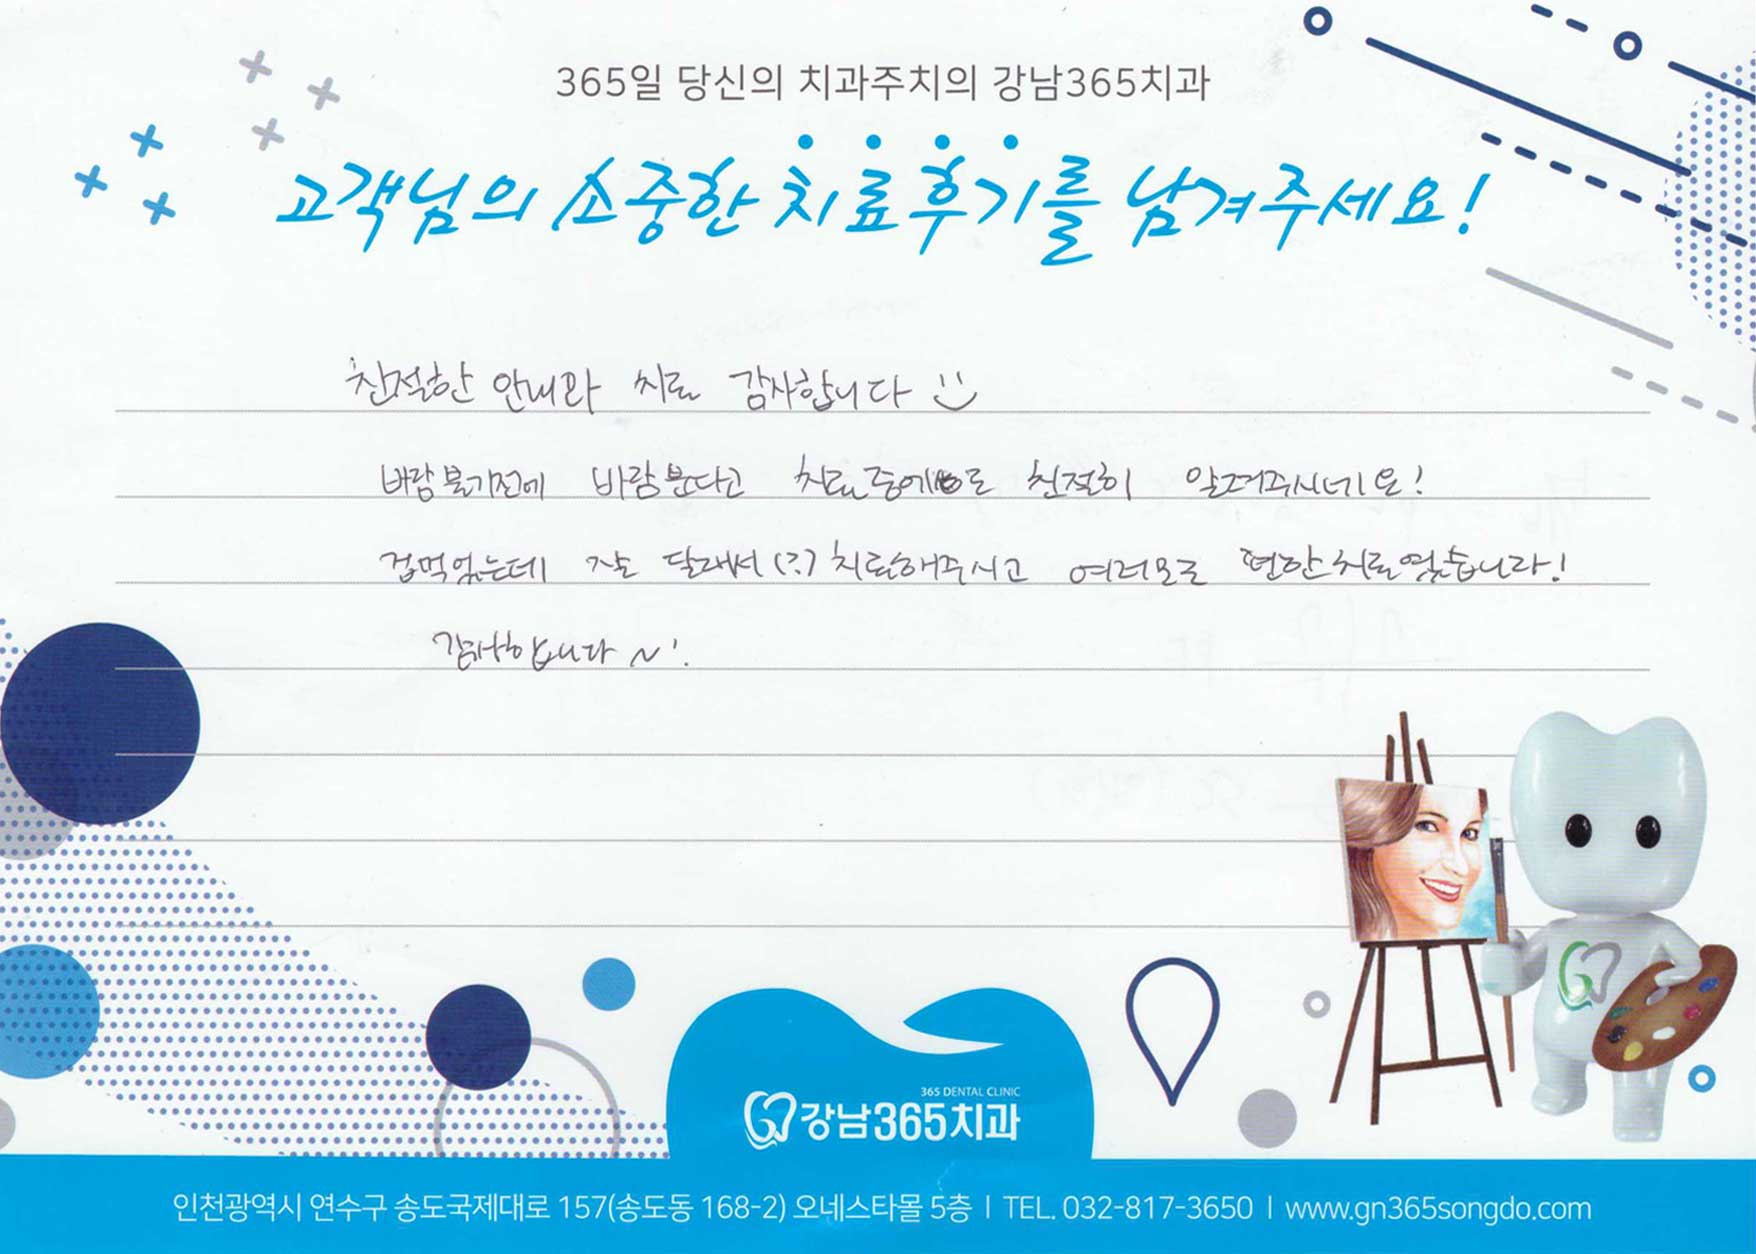 365일 당신의 치과주치의 강남365치과
고객님의 소중한 치료후기를 남겨주세요!
친절한 안내와 치료 감사합니다
바람불기전에 바람분다고 치료중에도 친절히 알려주시네요!
겁먹었는데 잘 달래서(?) 치료해주시고 여러모로 편한치료였습니다!
감사합니다 ~!
365 DENTAL CLINIC
강남365치과
인천광역시 연수구 송도국제대로 157(송도동 168-2) 오네스타몰 5층 | TEL. 032-817-3650 | www.gn365songdo.com